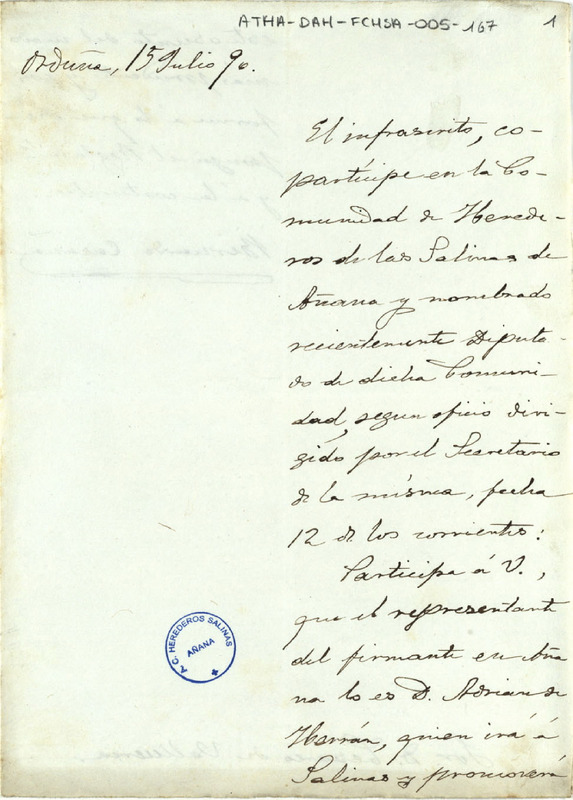 ATHA-DAH-FCHSA-005-167
1
Orduña, 15 Julio 90.
El infrascrito, co-
partícipe en la Co-
munidad de Herede-
ros de las Salinas de
Añana y nombrado
recientemente Diputa-
do de dicha Comuni-
dad, segun oficio diri-
gido por el Secretario
de la misma, fecha
12 de los corrientes:
Participa á V.,
que el representante
del firmante en Aña
na lo es D. Adrian de
Herrán, quien irá á
Salinas y promoverá
C. HEREDEROS SALINAS
AÑANA